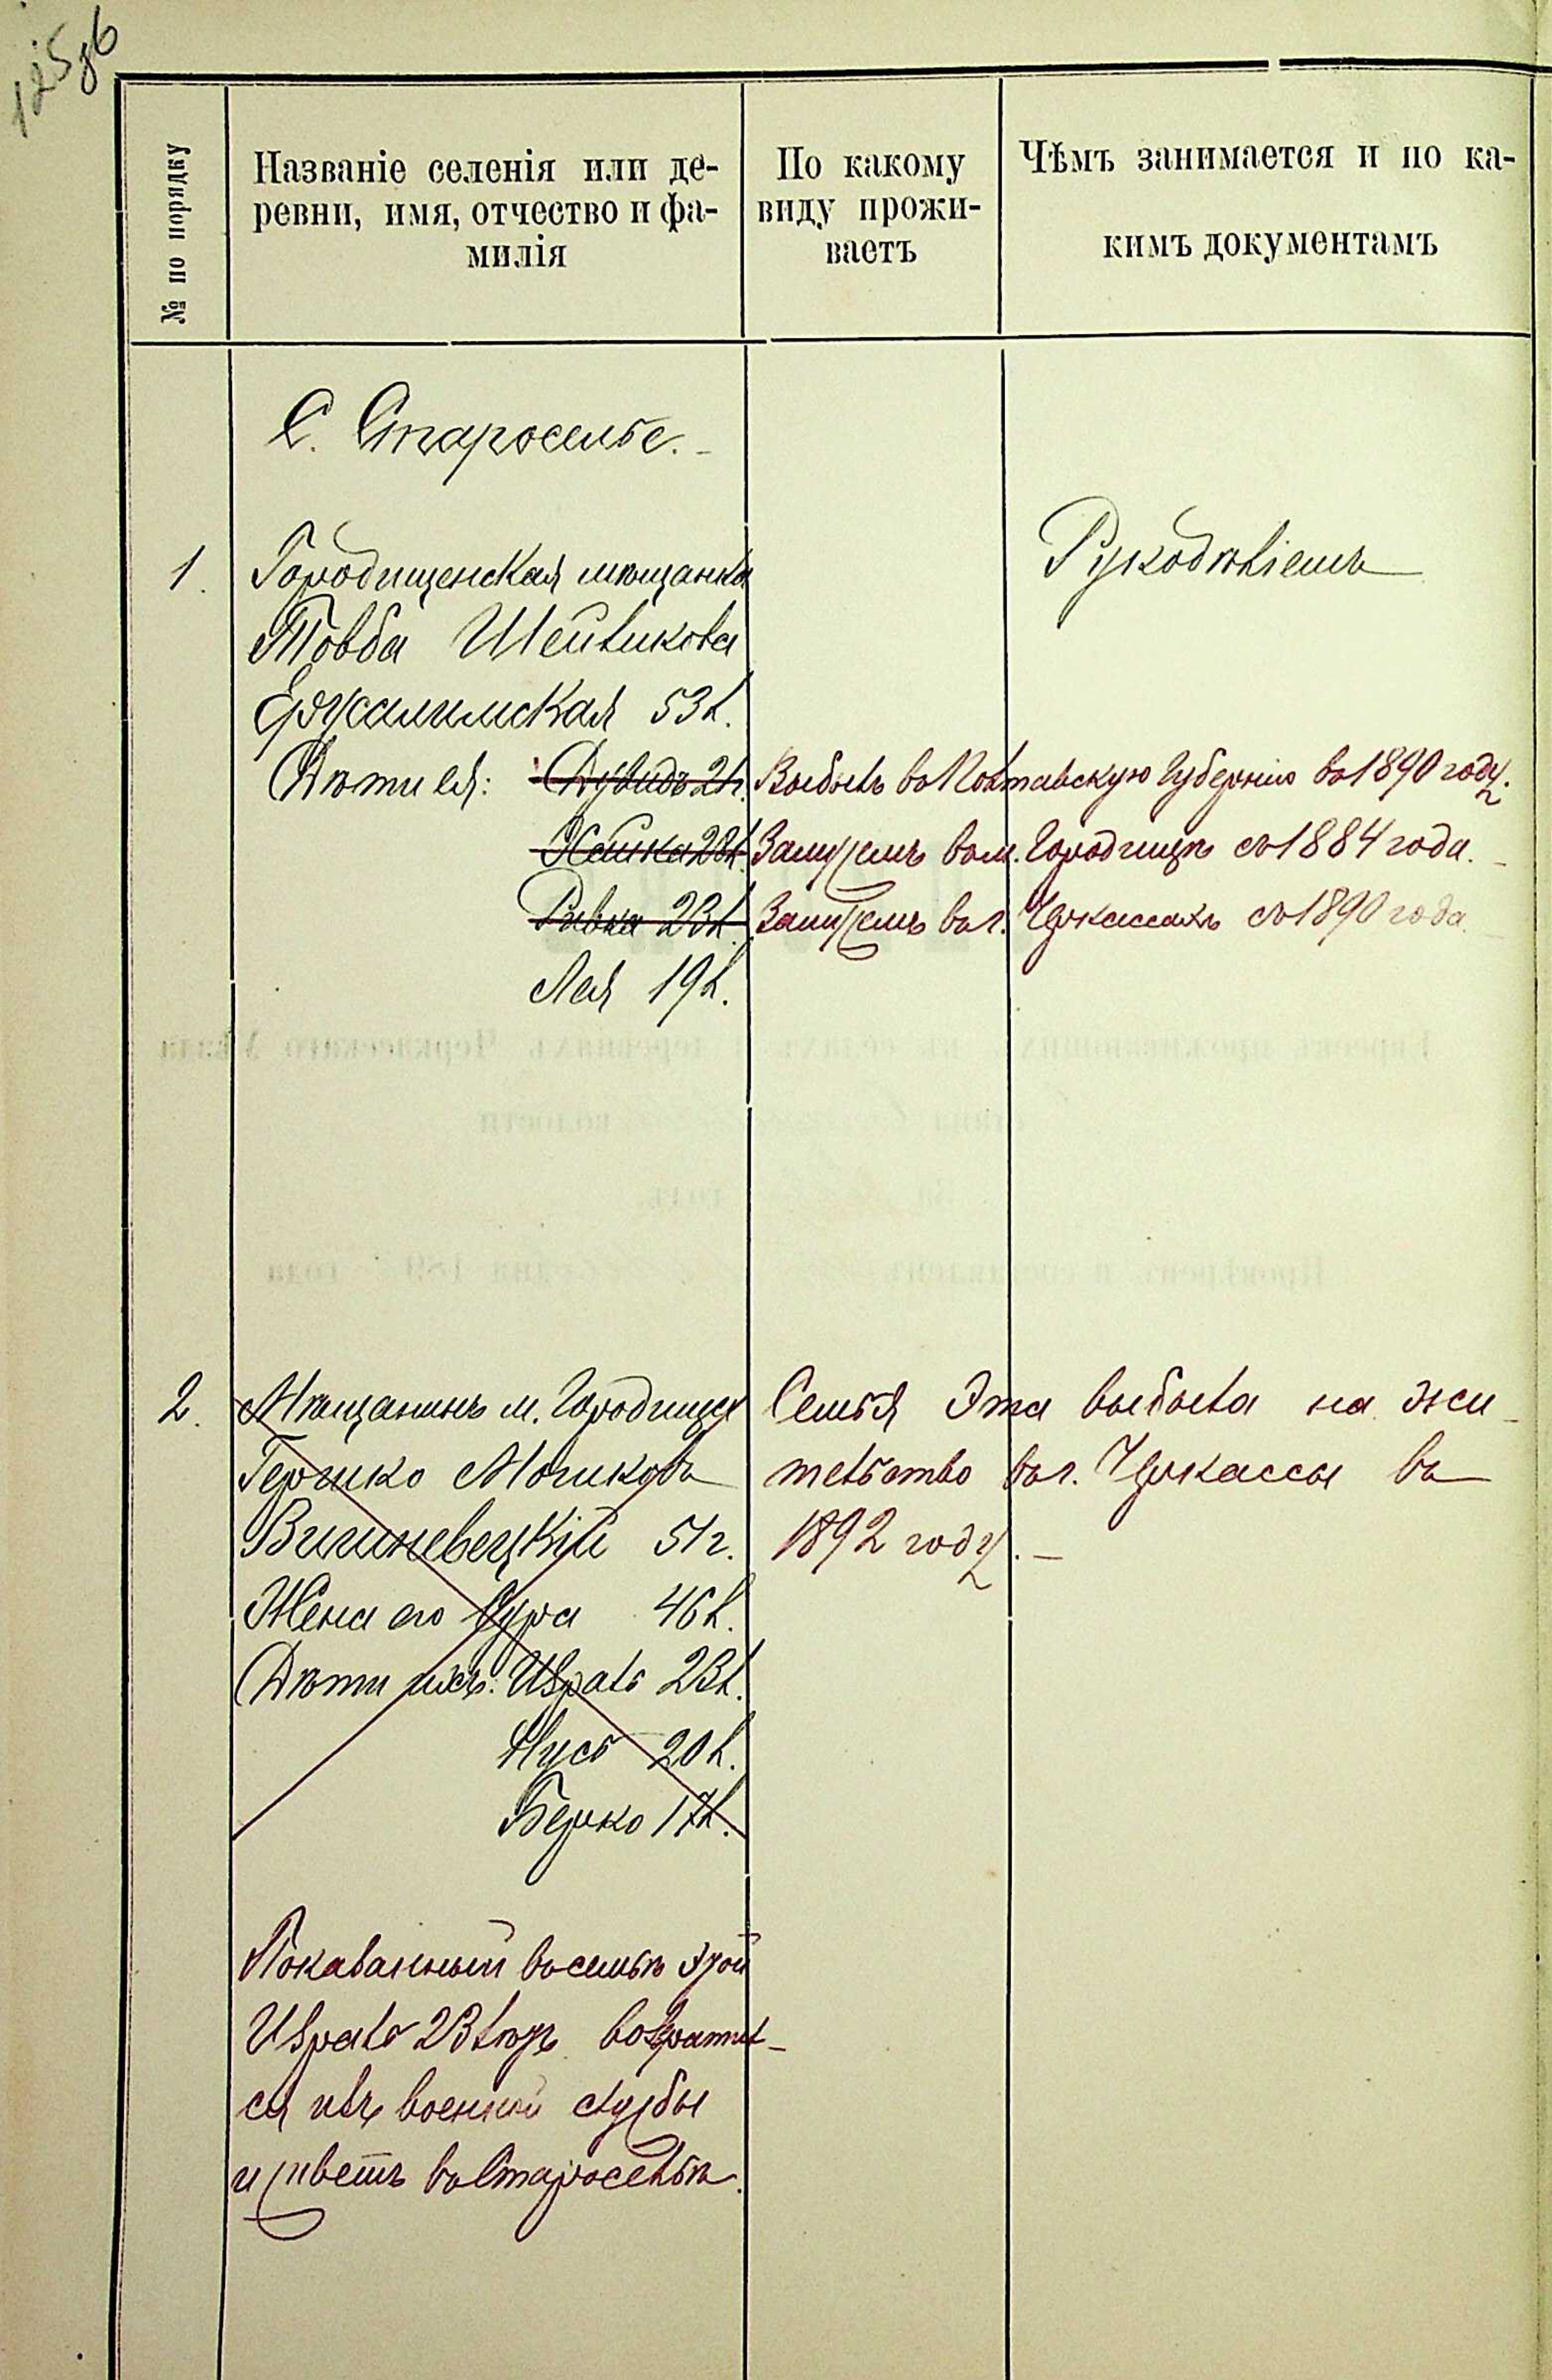 125об
№ по порядку
Названіе селенія или де-
ревни, имя, отчество и фа-
милія
По какому
виду прожи-
ваетъ
Чѣмъ занимается и по ка-
кимъ документамъ
С. Староселье.
1. Городищенская мѣщанка Рукодѣліемъ
Товба Шейвикова
Ерусалимская 53 л.
Дѣти ея: Дувидъ 21 г. Выбылъ въ Полтавскую Губернію въ 1890 году.
Хайка 28 л. Замужемъ въ м. Городищѣ съ 1884 года.
Ривка 23 л. Замужемъ въ г. Черкассахъ съ 1890 года.
Лея 19 л.
2. Мѣщанинъ м. Городища Семья Эта выбыла на жи-
Гершко Мошковъ тельство въ г. Черкассы въ
Вишневецкій 51 г. 1892 году.
Жена его Сура 46 л.
Дѣти ихъ: Израль 23 л.
Нусь 20 л.
Берко 17 л.
Показанный въ семьѣ этой
Израль 23 лѣтъ возратил-
ся изъ военной службы
и живетъ въ Староселье.